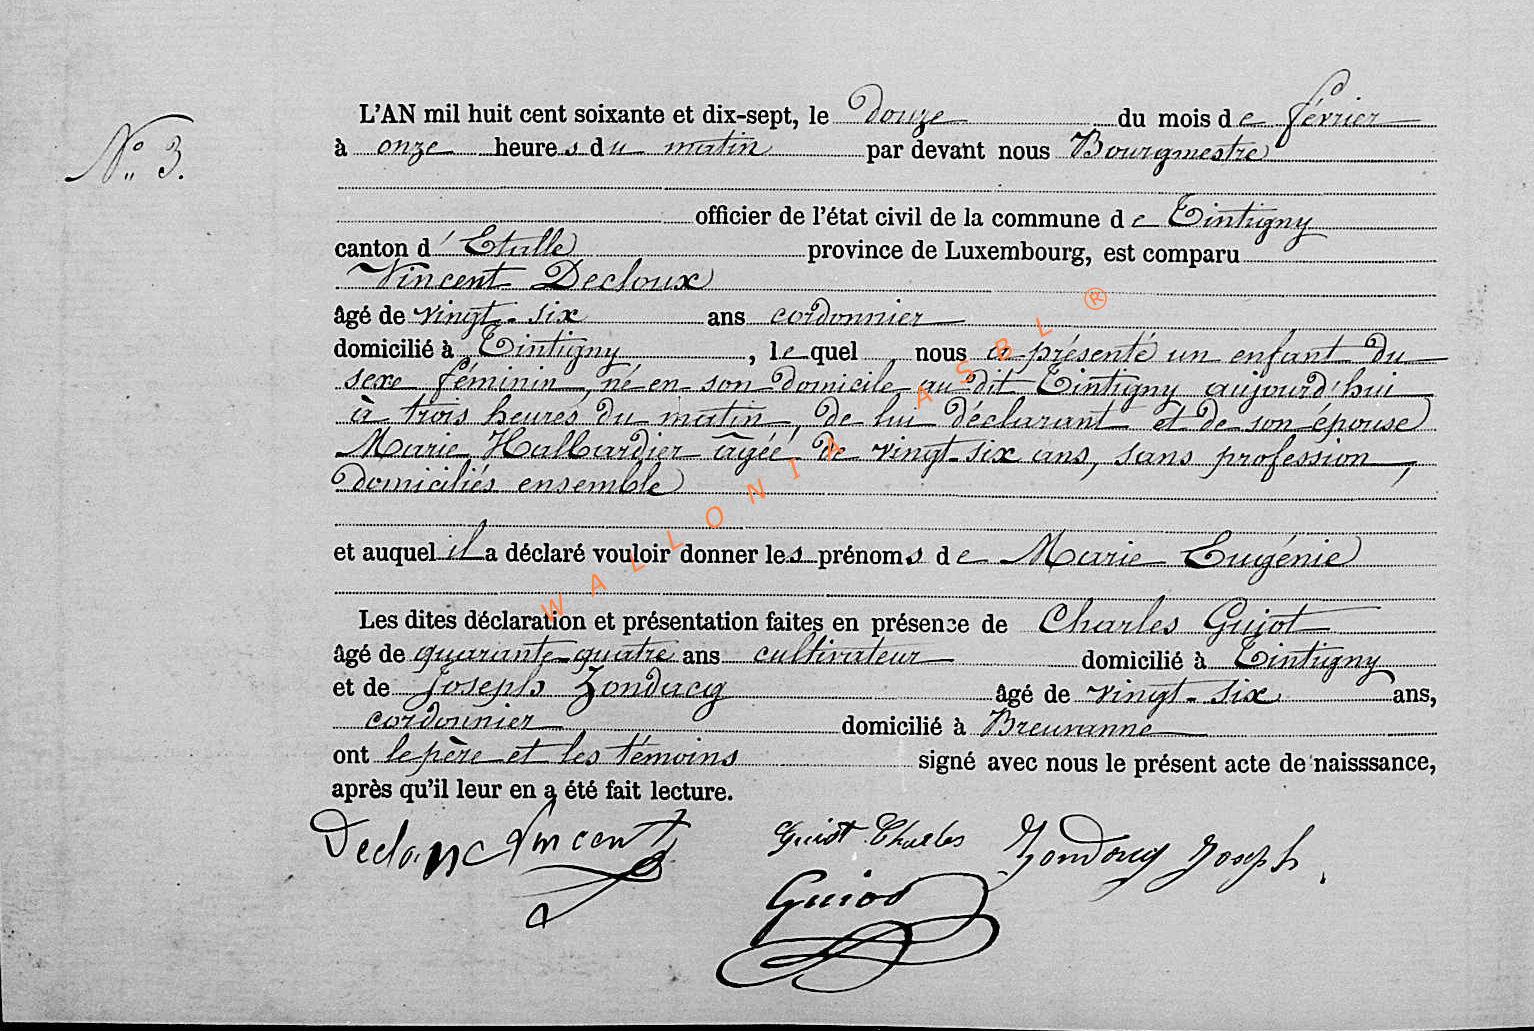 N° 3.
L'AN mil huit cent soixante et dix-sept, le douze du mois de février
à onze heures du matin par devant nous Bourgmestre
officier de l'état civil de la commune de Tintigny
canton d'Etalle province de Luxembourg, est comparu
Vincent Decloux
âgé de vingt-six ans cordonnier
domicilié à Tintigny, lequel nous a présenté un enfant du
sexe féminin, né en son domicile au dit Tintigny aujourd'hui
à trois heures du matin, de lui déclarant et de son épouse
Marie Halbardier âgée de vingt-six ans, sans profession,
domiciliés ensemble
et auquel il a déclaré vouloir donner les prénoms de Marie Eugénie
Les dites déclaration et présentation faites en présence de Charles Guiot
âgé de quarante-quatre ans cultivateur domicilié à Tintigny
et de Joseph Zondacq âgé de vingt-six ans,
cordonnier domicilié à Breuvanne
ont le père et les témoins signé avec nous le présent acte de naisssance,
après qu'il leur en a été fait lecture.
Vincent Guiot Charles Joseph
Guiot
WALLONIA ASBL ®